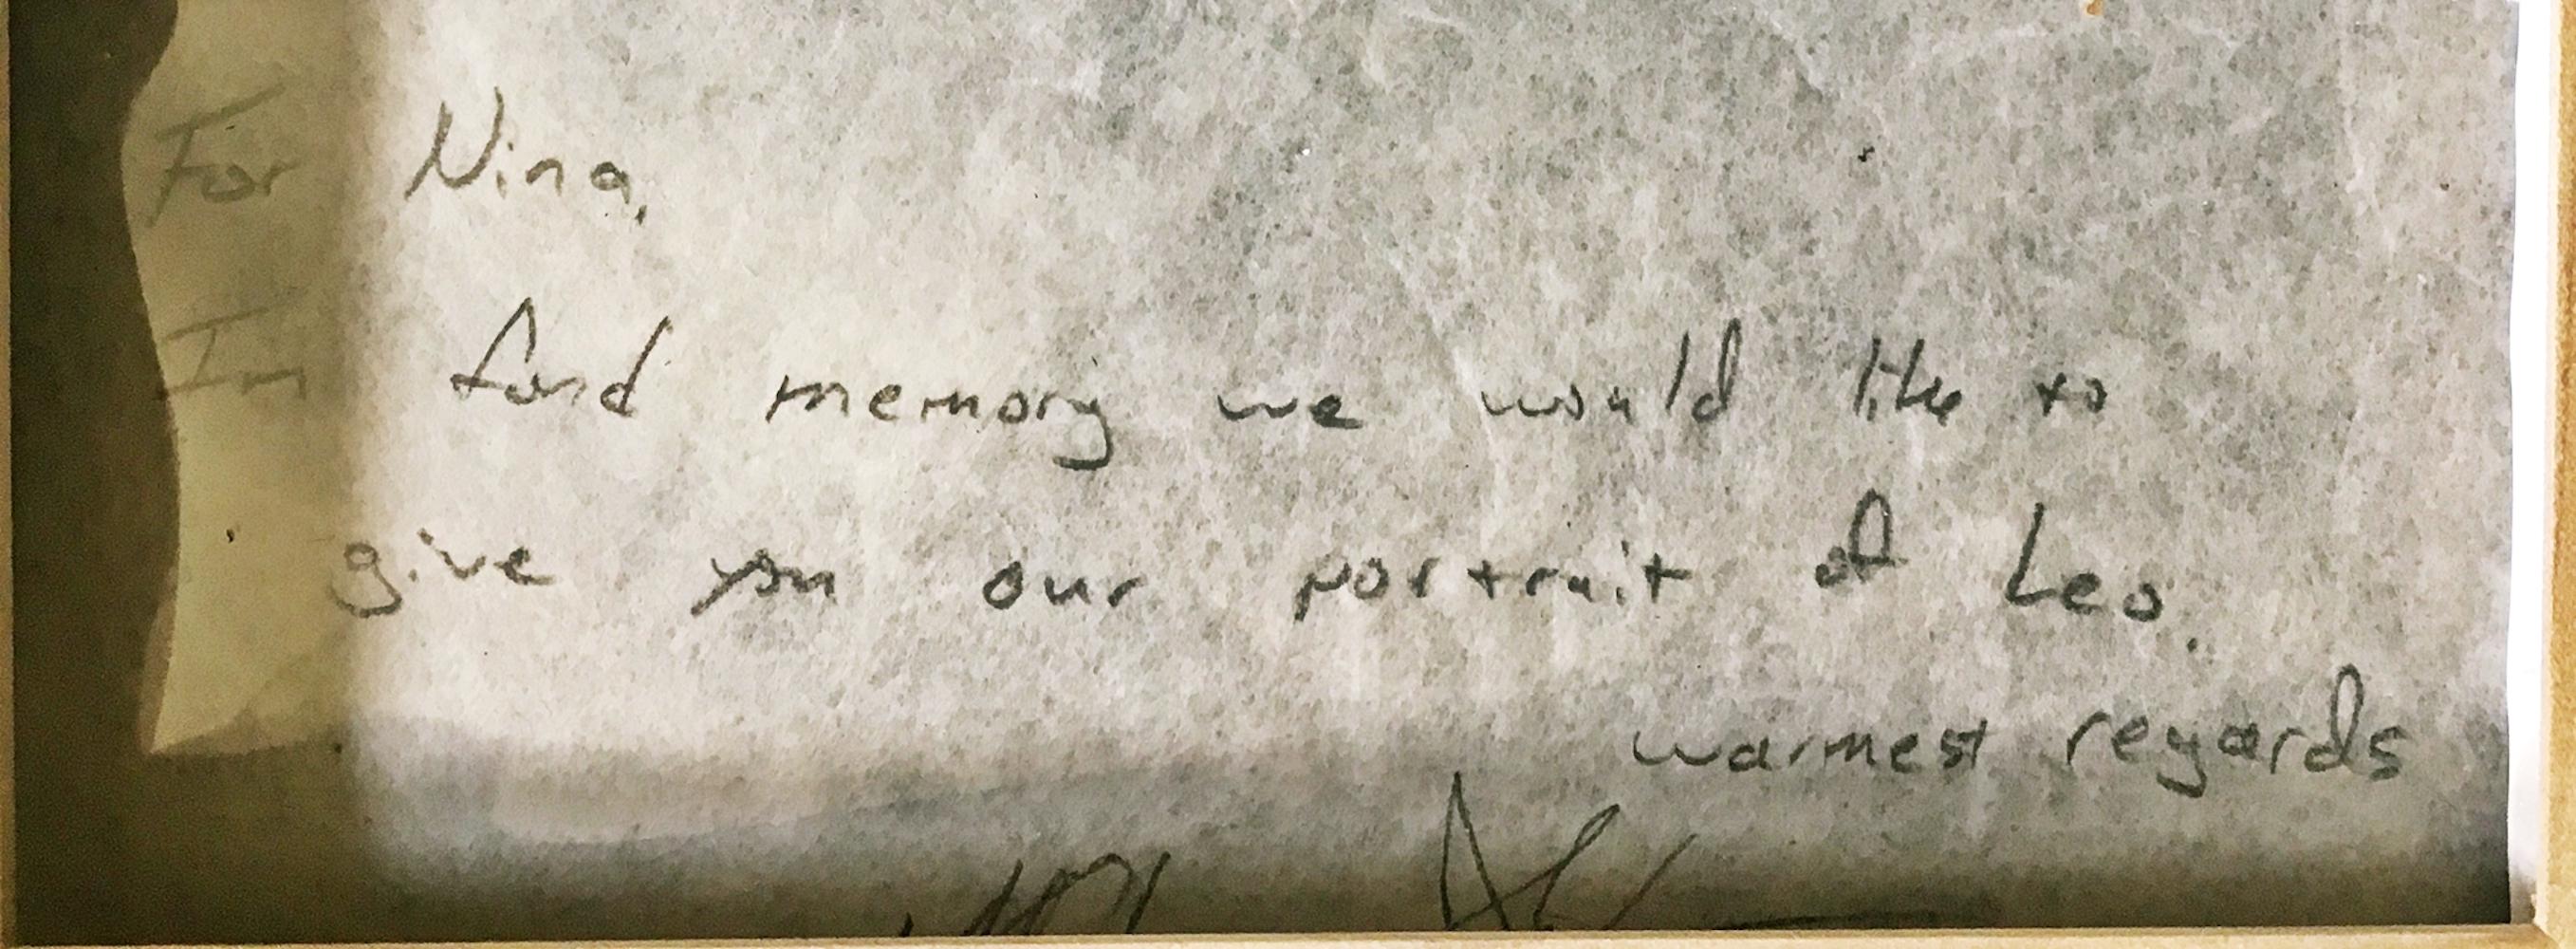 For Nina,
In fond memory we would like to
give you our portrait of Leo.
warmest regards